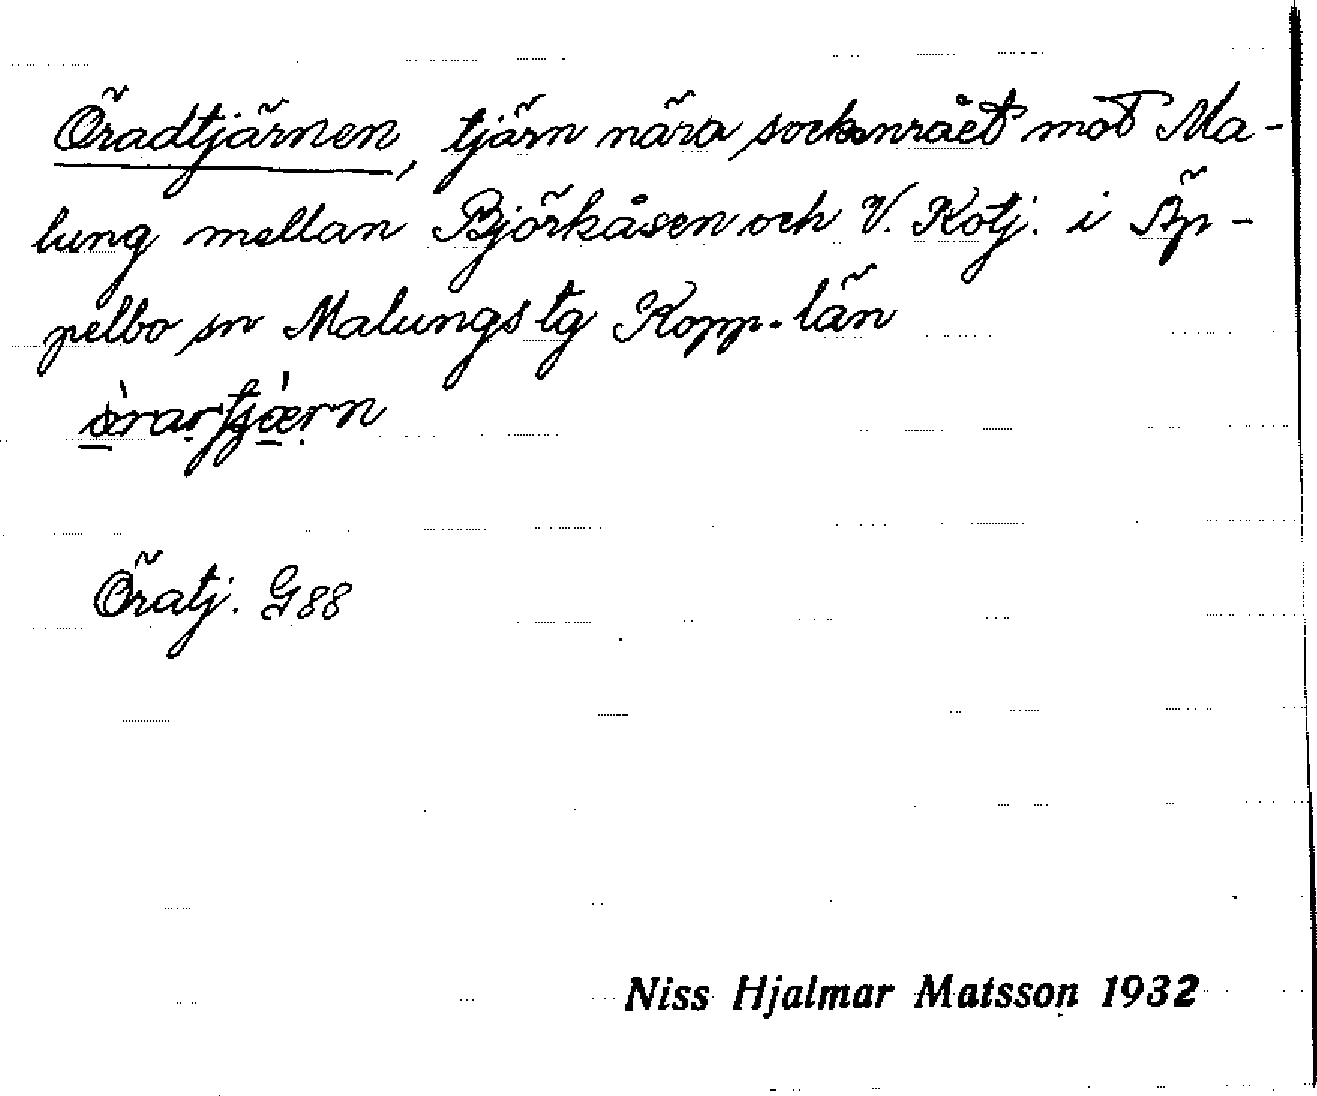 Öradtjärnen, tjärn nära sockenrået mot Ma-
lung mellan Björkåsen och V. Kötj. i Äp-
pelbo sn Malungs tg Kopp. län
Öratj. G88
Niss Hjalmar Matsson 1932